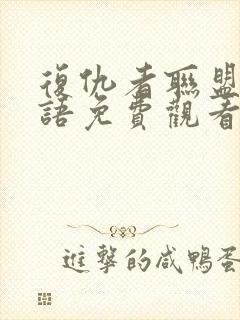 復仇者聯盟
語免費觀看
進擊的咸鴨蛋